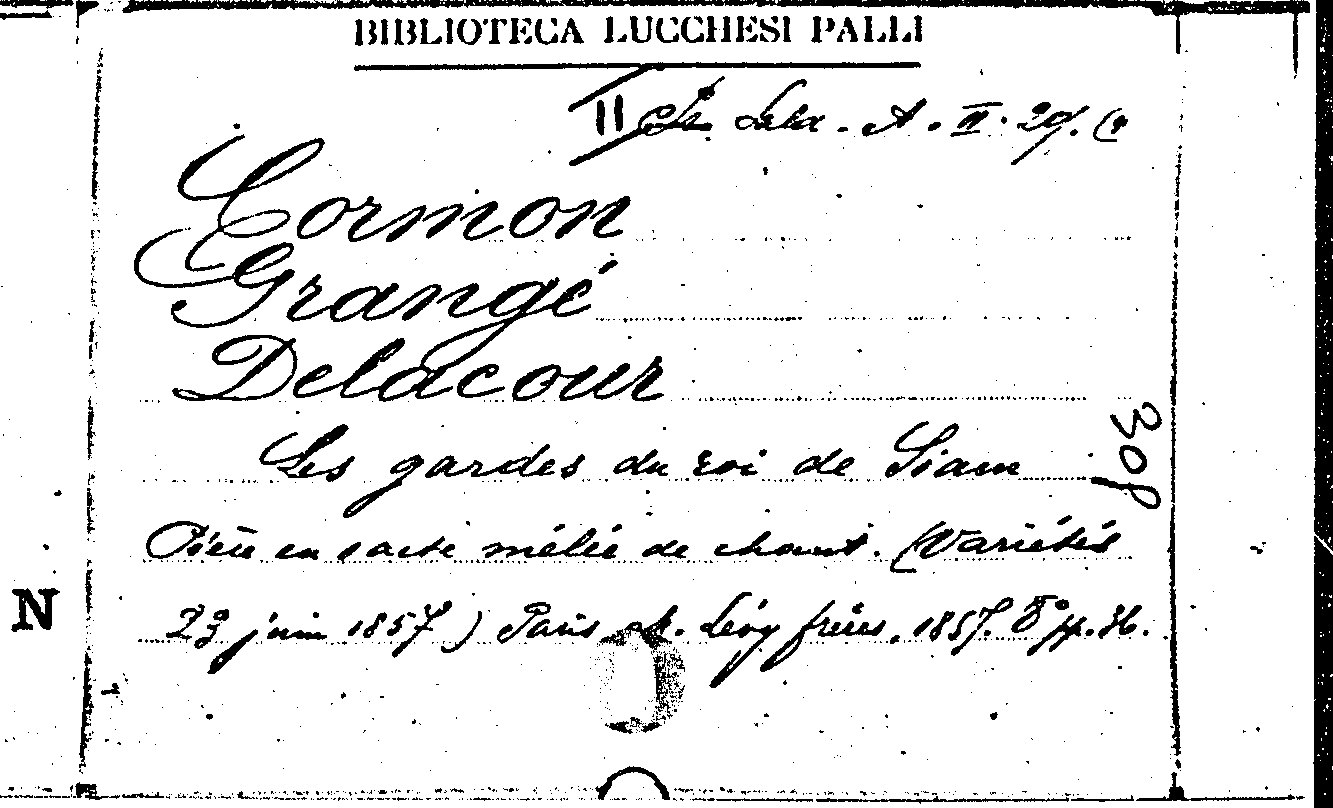 BIBLIOTECA LUCCHESI PALLI
II Sala. A. II. 29.
Cormon
Grangé
Delacour
Les gardes du roi de Siam
308
Pièce en 1 acte mêlée de chant. (Variétés
N
23 juin 1857) Paris M. Lévy frères, 1857. 8° pp. 36.